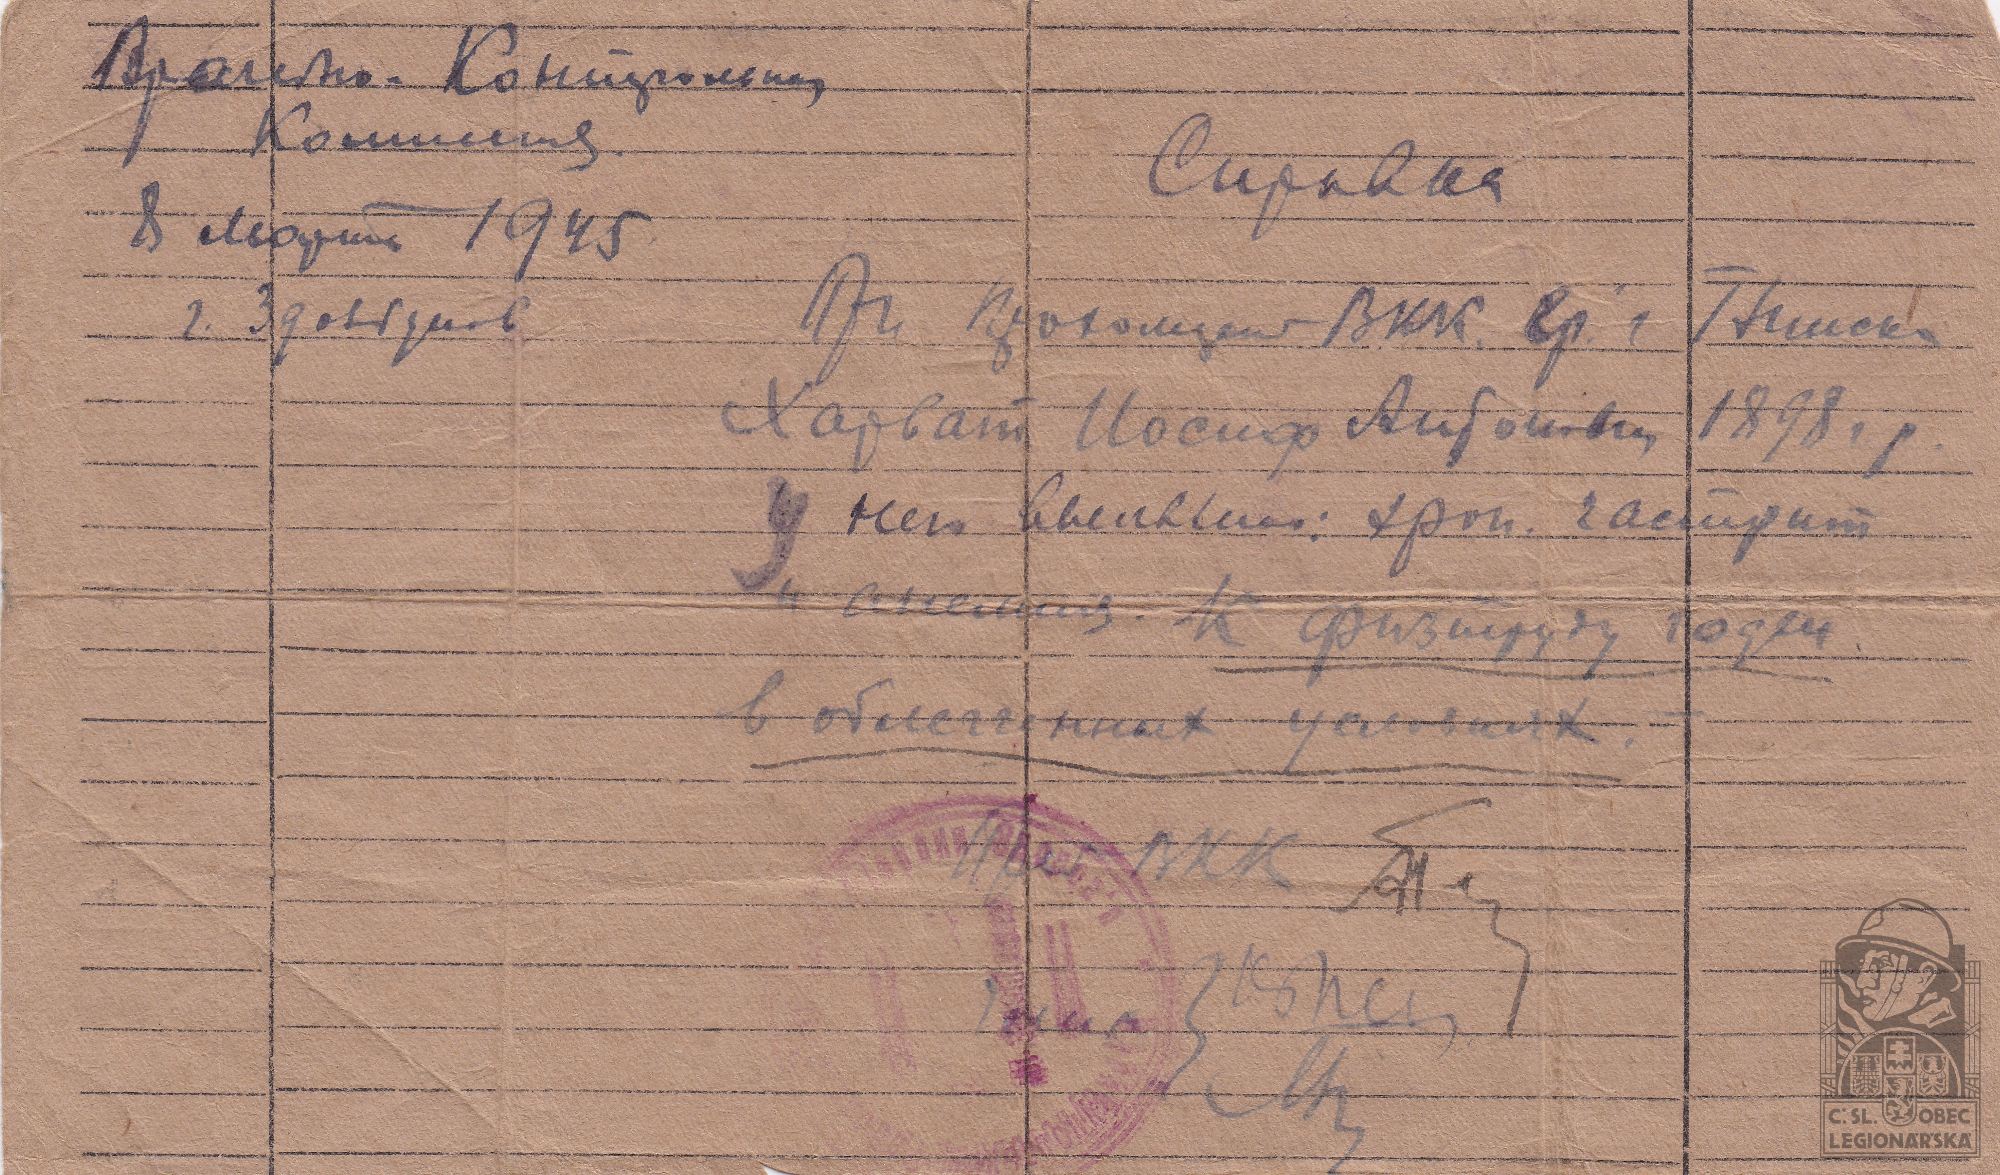 Врачебно-Контрольная
Комиссия.
8 марта 1945
г. Здолбунов
Справка
При ВКК. гр.
Харват Иосиф Антонович 1898 г.р.
У него выявлено: хрон. гастрит
и анемия. К физтруду годен
в облегченных условиях. –
ВКК
Члены
Č. SL. OBEC
LEGIONÁŘSKÁ